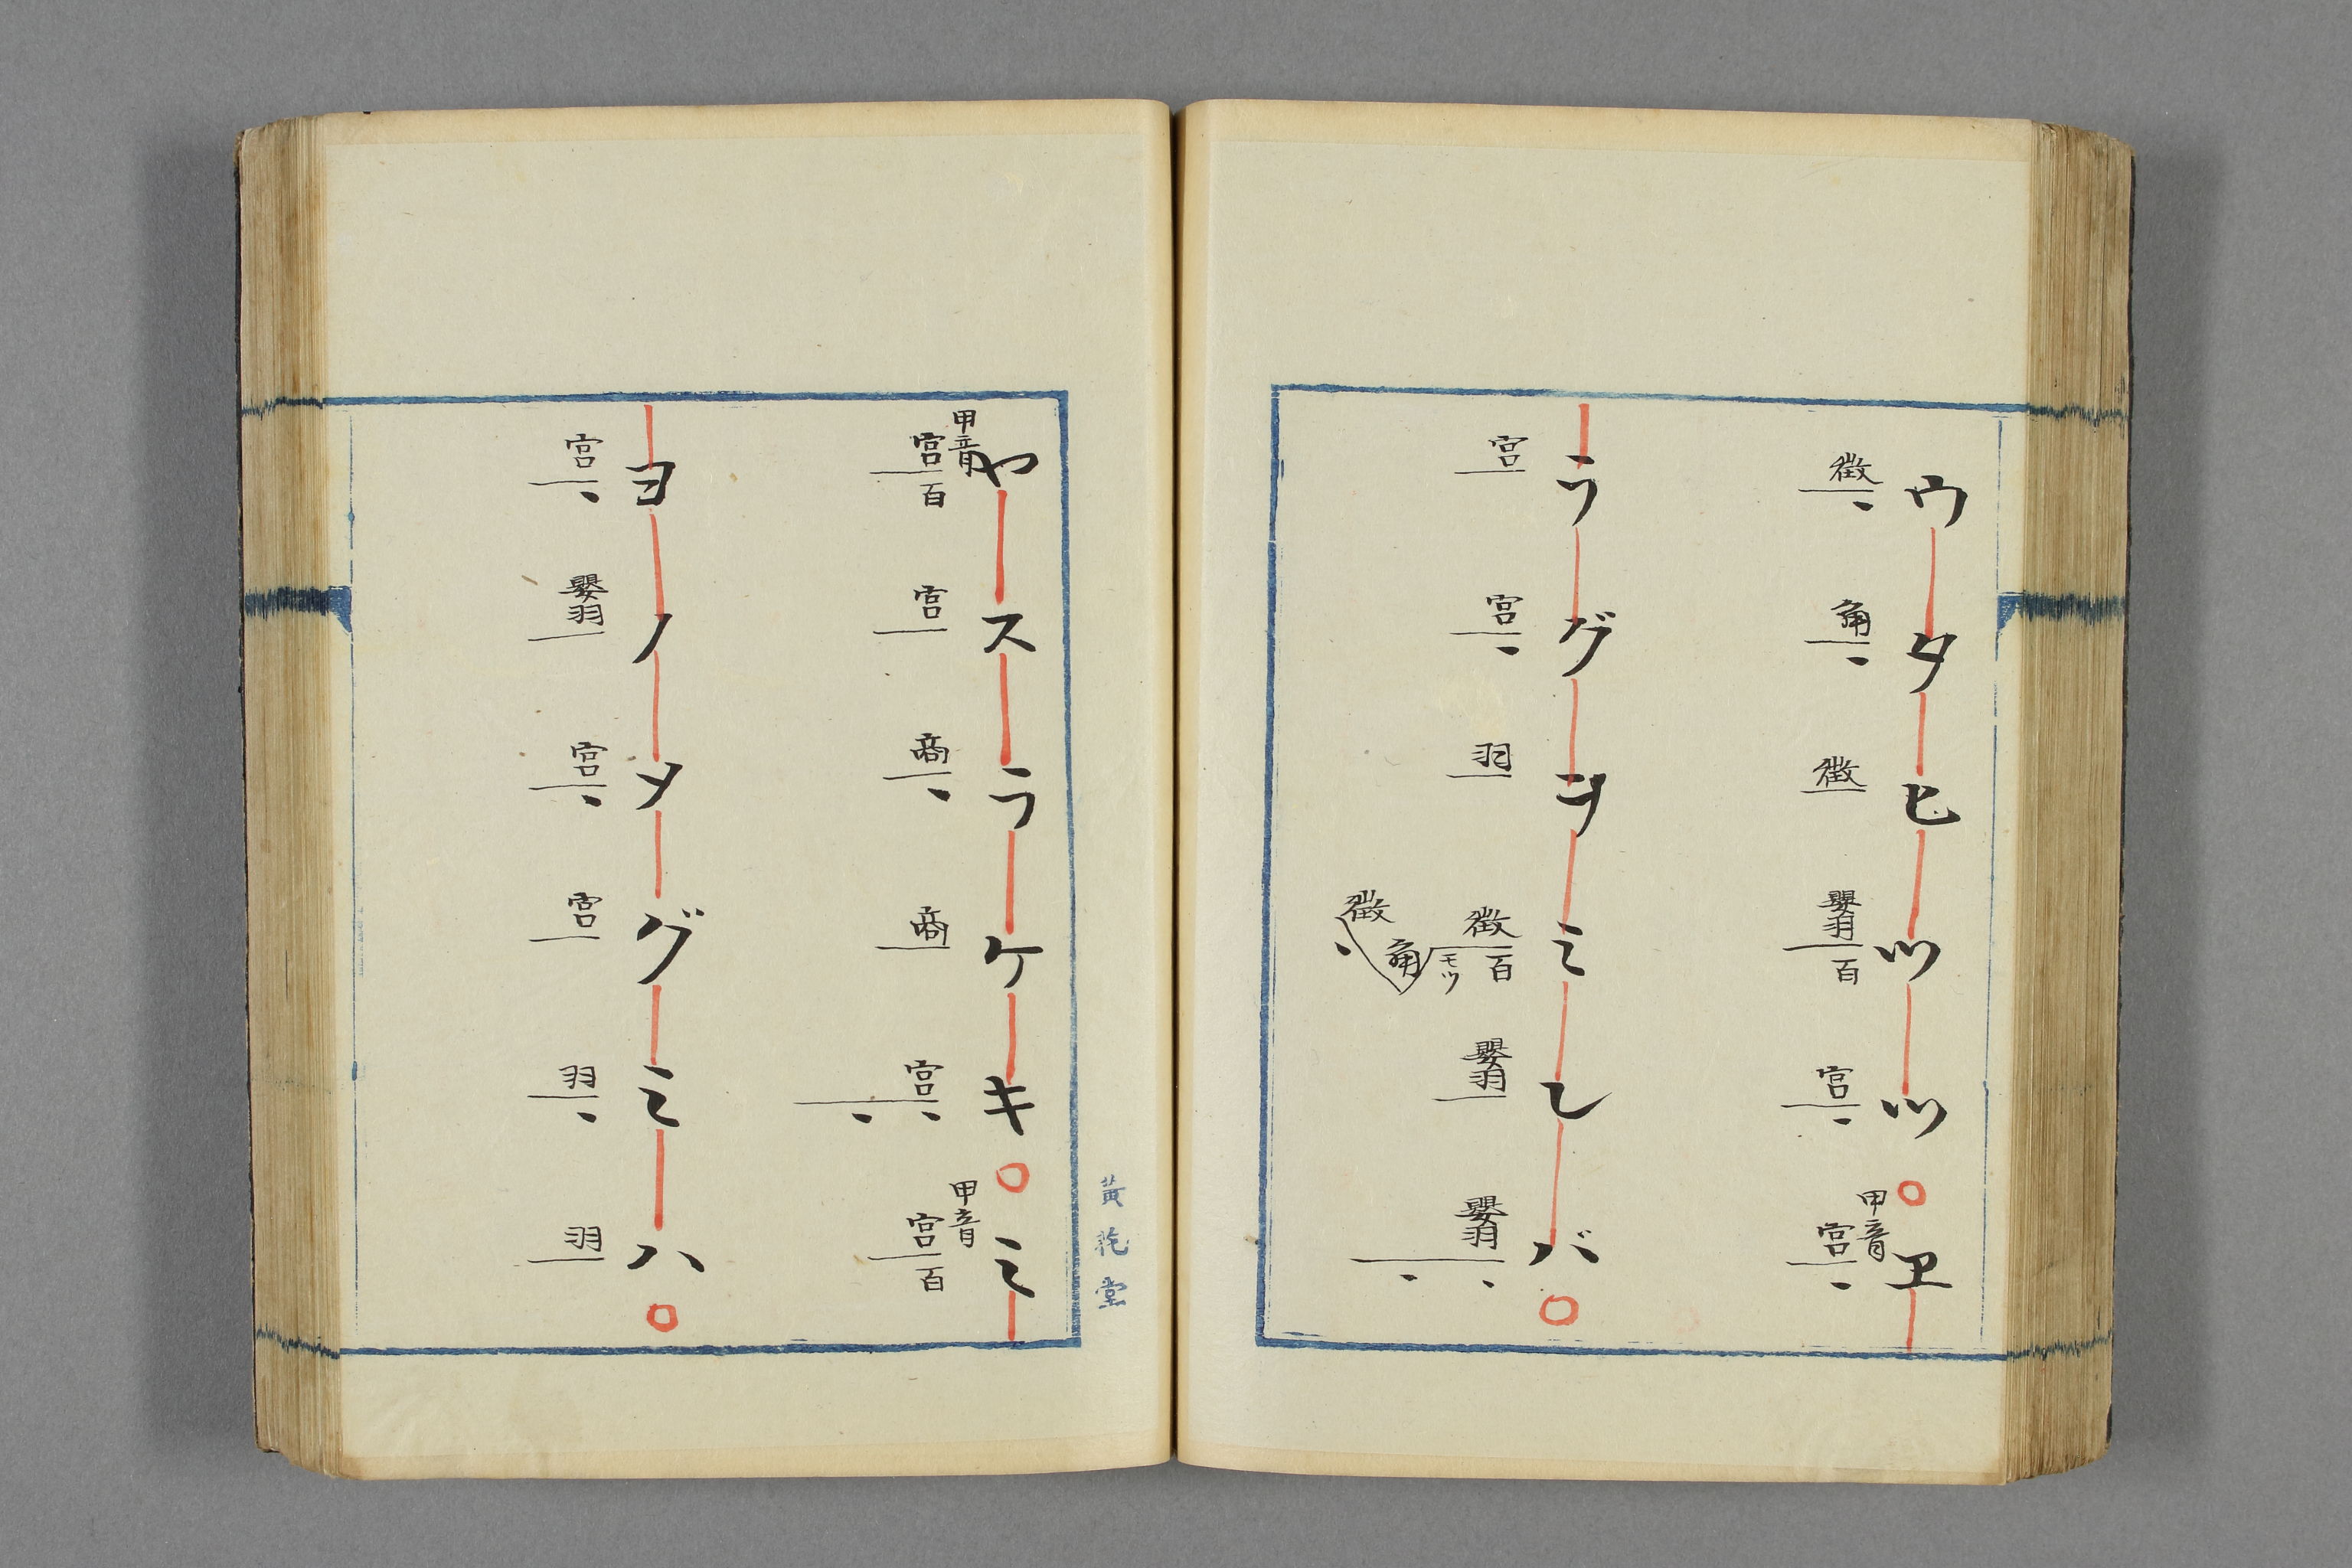 ウタヒツツ○ヱ
徴 角 徴 嬰羽百 宮 甲音宮
ラグヲミレバ○
宮 宮 羽 徴百モツ角徴 嬰羽 嬰羽
ヤスラケキ○ミ
甲音宮百 宮 商 商 宮 甲音宮百
ヨノメグミハ○
宮 嬰羽 宮 宮 羽 羽
黄 堂